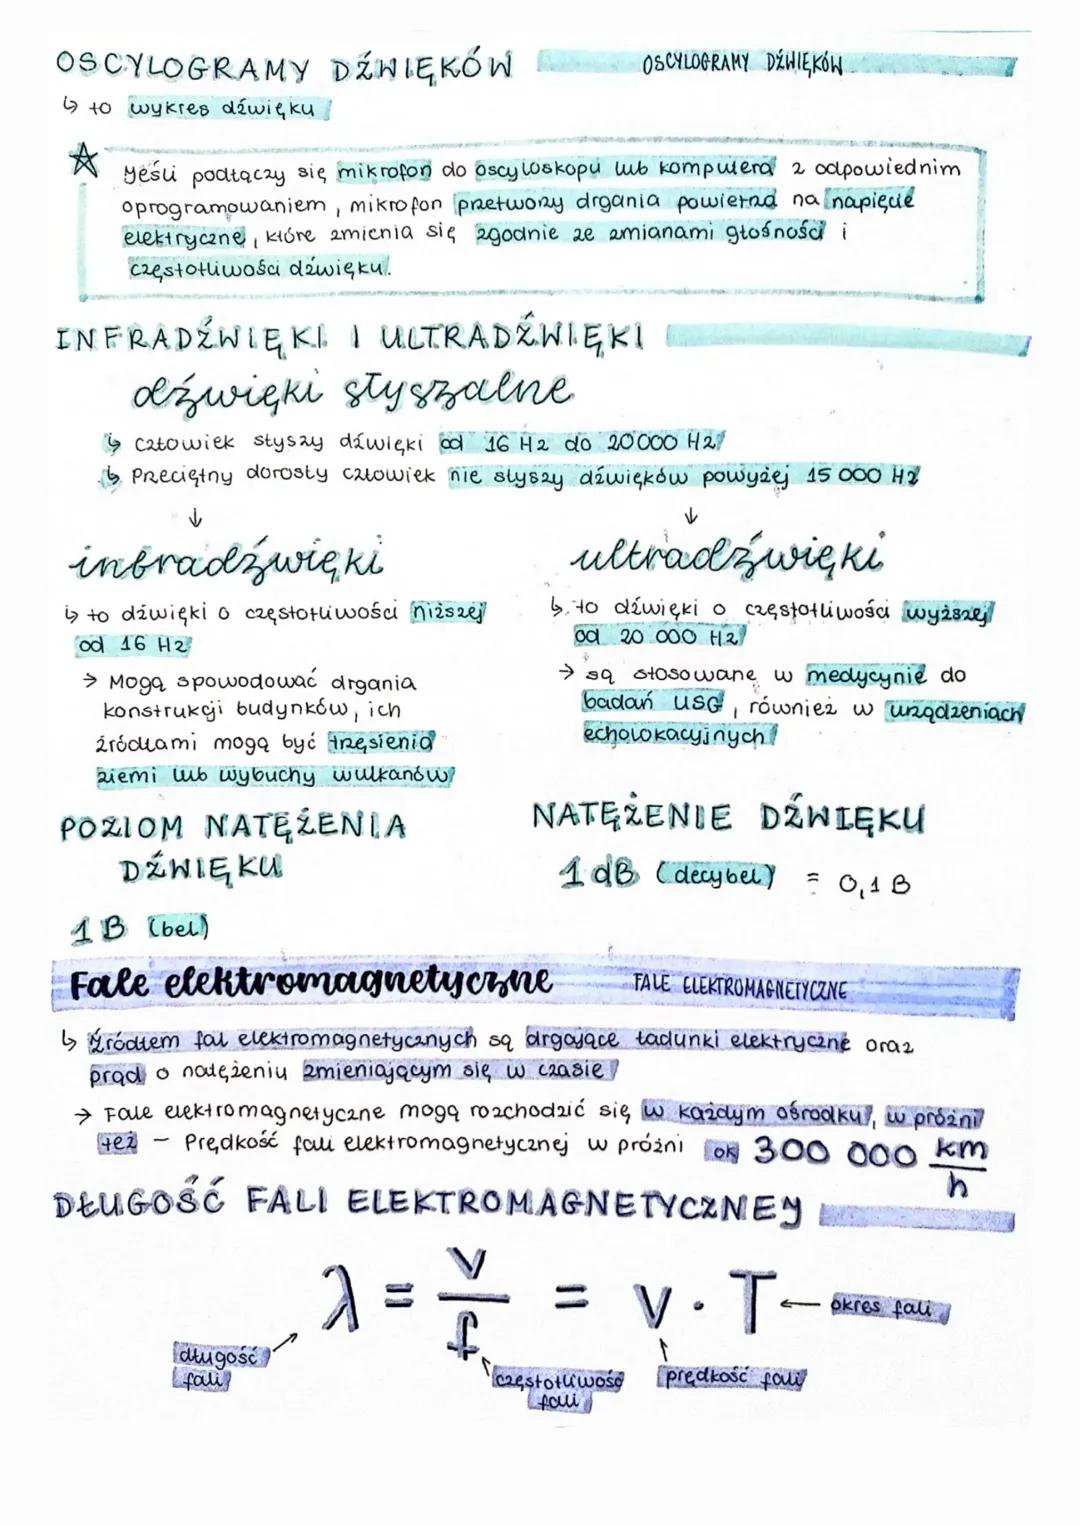 OSCYLOGRAMY DŹWIĘKÓW OSCYLOGRAMY DŹWIĘKÓW
↳ to wykres dźwięku
☆ Jeśli podłączy się mikrofon do oscyloskopu lub komputera z odpowiednim
oprogramowaniem, mikrofon przetworzy drgania powietrza na napięcie
elektryczne, które zmienia się zgodnie ze zmianami głośności i
częstotliwości dźwięku.
INFRADŹWIĘKI I ULTRADŹWIĘKI
dźwięki słyszalne
↳ człowiek słyszy dźwięki od 16 Hz do 20 000 Hz
↳ Przeciętny dorosły człowiek nie słyszy dźwięków powyżej 15 000 Hz
↓ ↓
infradźwięki
↳ to dźwięki o częstotliwości niższej
od 16 Hz
→ Mogą spowodować drgania
konstrukcji budynków, ich
źródłami mogą być trzęsienia
ziemi lub wybuchy wulkanów
ultradźwięki
↳ to dźwięki o częstotliwości wyższej
od 20 000 Hz
→ są stosowane w medycynie do
badań USG, również w urządzeniach
echolokacyjnych
POZIOM NATĘŻENIA
DŹWIĘKU
1 B (bel)
NATĘŻENIE DŹWIĘKU
1 dB (decybel) = 0,1 B
Fale elektromagnetyczne FALE ELEKTROMAGNETYCZNE
↳ Źródłem fal elektromagnetycznych są drgające ładunki elektryczne oraz
prąd o natężeniu zmieniającym się w czasie
→ Fale elektromagnetyczne mogą rozchodzić się w każdym ośrodku, w próżni
też – Prędkość fali elektromagnetycznej w próżni ok 300 000 km/h
DŁUGOŚĆ FALI ELEKTROMAGNETYCZNEJ
λ = v/f = v · T ← okres fali
długość
fali
częstotliwość
fali
prędkość fali